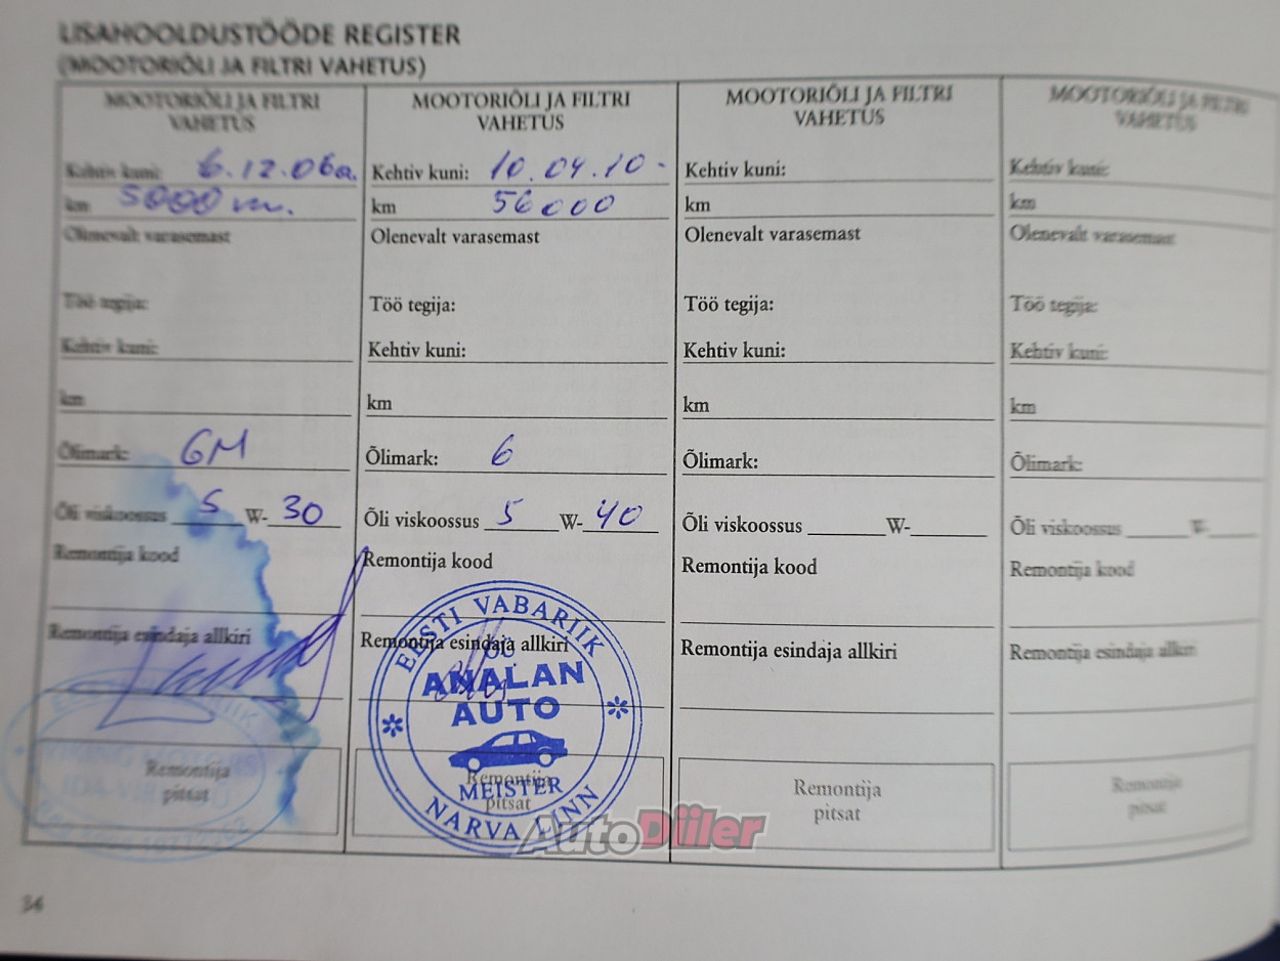 LISAHOOLDUSTÖÖDE REGISTER
(MOOTORIÕLI JA FILTRI VAHETUS)
MOOTORIÕLI JA FILTRI
VAHETUS
Kehtiv kuni: 6.12.06a.
km 5000 m.
Olenevalt varasemast
Töö tegija:
Kehtiv kuni:
km
Õlimark: GM
Õli viskoossus 5 W-30
Remontija kood
Remontija esindaja allkiri
Remontija
pitsat
MOOTORIÕLI JA FILTRI
VAHETUS
Kehtiv kuni: 10.04.10-
km 56000
Olenevalt varasemast
Töö tegija:
Kehtiv kuni:
km
Õlimark: 6
Õli viskoossus 5 W-40
Remontija kood
Remontija esindaja allkiri
EESTI VABARIIK
OÜ
ANALAN
AUTO
MEISTER
NARVA LINN
Remontija
pitsat
MOOTORIÕLI JA FILTRI
VAHETUS
Kehtiv kuni:
km
Olenevalt varasemast
Töö tegija:
Kehtiv kuni:
km
Õlimark:
Õli viskoossus ______W-______
Remontija kood
Remontija esindaja allkiri
Remontija
pitsat
MOOTORIÕLI JA FILTRI
VAHETUS
Kehtiv kuni:
km
Olenevalt varasemast
Töö tegija:
Kehtiv kuni:
km
Õlimark:
Õli viskoossus ______W-______
Remontija kood
Remontija esindaja allkiri
Remontija
pitsat
AutoDiiler
34